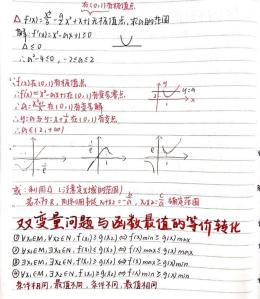 在(0,1)有极值点
△ f(x)=x³/3-a/2x²+x+1无极值点,求a的范围
解:f'(x)=x²-ax+1≥0
△≤0
∴a²-4≤0,-2≤a≤2
∵f(x)在(0,1)有极值点
∴f'(x)=x²-ax+1在(0,1)有变号零点
∴a=在(0,1)有变号解
∴y=a与y=x+1/x在(0,1)有交点
∴a∈(2,+∞)
y
y=a
x
或:利用△(注意定义域的范围)
双变量问题与函数最值的等价转化
①∀x₁∈M,∀x₂∈N,f(x₁)≥g(x₂)⇔f(x)min≥g(x)max
②∀x₁∈M,∃x₂∈N,f(x₁)≥g(x₂)⇔f(x)min≥g(x)min
③∃x₁∈M,∀x₂∈N,f(x₁)≥g(x₂)⇔f(x)max≥g(x)max
④∃x₁∈M,∃x₂∈N,f(x₁)≥g(x₂)⇔f(x)max≥g(x)min
条件相同,最值不同,条件不同,最值相同